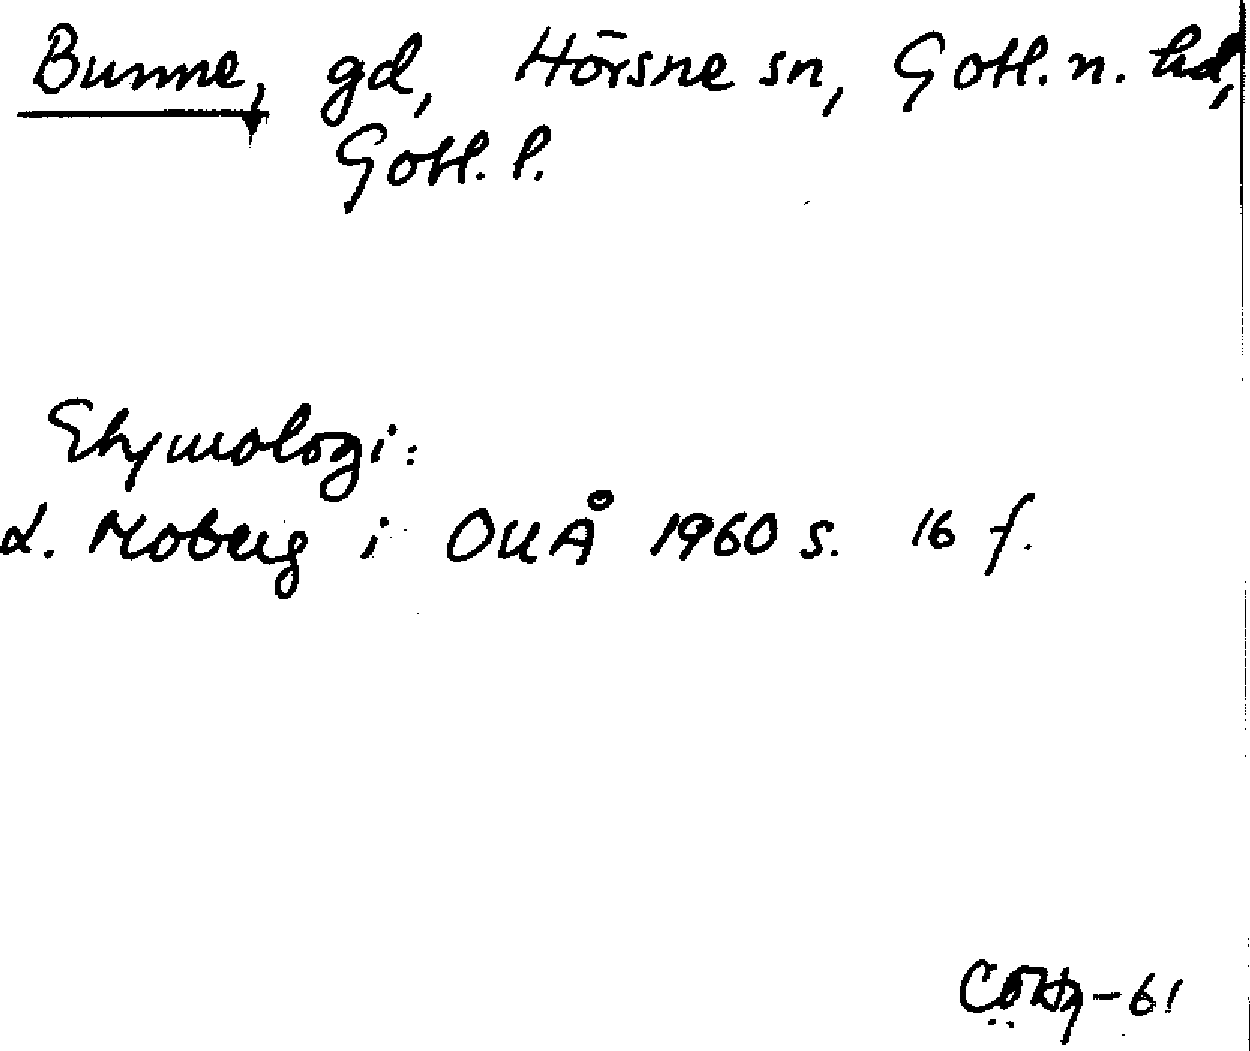 Bunne, gd, Hörsne sn, Gotl. n. hd,
Gotl. l.
Etymologi:
L. Moberg i OUÅ 1960 s. 16 f.
-61